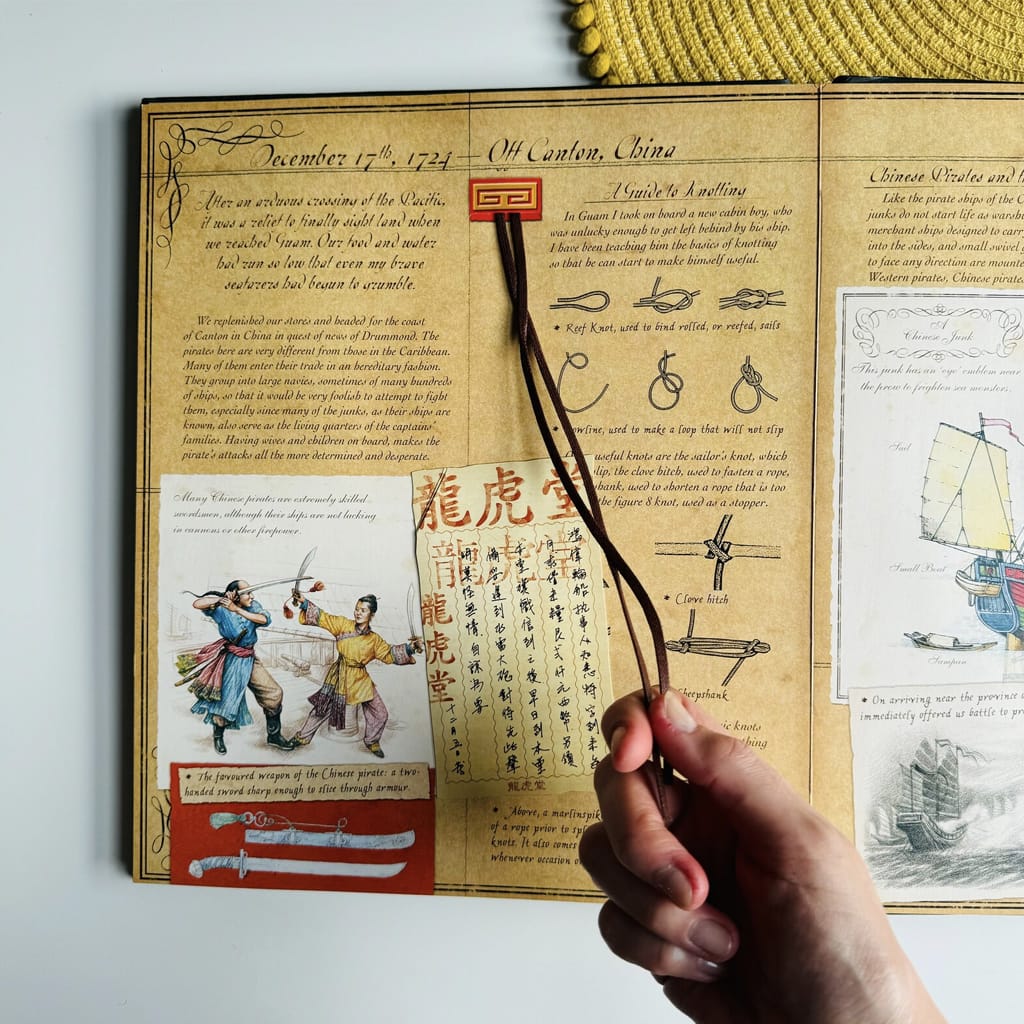 December 17th, 1724 — Off Canton, China
After an arduous crossing of the Pacific,
it was a relief to finally sight land when
we reached Guam. Our food and water
had run so low that even my brave
seafarers had begun to grumble.
We replenished our stores and headed for the coast
of Canton in China in quest of news of Drummond. The
pirates here are very different from those in the Caribbean.
Many of them enter their trade in an hereditary fashion.
They group into large navies, sometimes of many hundreds
of ships, so that it would be very foolish to attempt to fight
them, especially since many of the junks, as their ships are
known, also serve as the living quarters of the captains'
families. Having wives and children on board, makes the
pirate's attacks all the more determined and desperate.
Many Chinese pirates are extremely skilled
swordsmen, although their ships are not lacking
in cannons or other firepower.
* The favoured weapon of the Chinese pirate: a two-
handed sword sharp enough to slice through armour.
龍虎堂
龍虎堂
龍虎堂
十二月五日
龍虎堂
A Guide to Knotting
In Guam I took on board a new cabin boy, who
was unlucky enough to get left behind by his ship.
I have been teaching him the basics of knotting
so that he can start to make himself useful.
* Reef Knot, used to bind rolled, or reefed, sails
* owline, used to make a loop that will not slip
useful knots are the sailor's knot, which
slip, the clove hitch, used to fasten a rope,
hank, used to shorten a rope that is too
the figure 8 knot, used as a stopper.
* Clove hitch
heepshank
ic knots
thing
* Above, a marlinspik
of a rope prior to spl
knots. It also comes
whenever occasion
Chinese Pirates and th
Like the pirate ships of the C
junks do not start life as warsh
merchant ships designed to carry
into the sides, and small swivel
to face any direction are mounte
Western pirates, Chinese pirates
A
Chinese Junk
This junk has an 'eye' emblem near
the prow to frighten sea monsters.
Sail
Small Boat
Sampan
* On arriving near the province
immediately offered us battle to pr